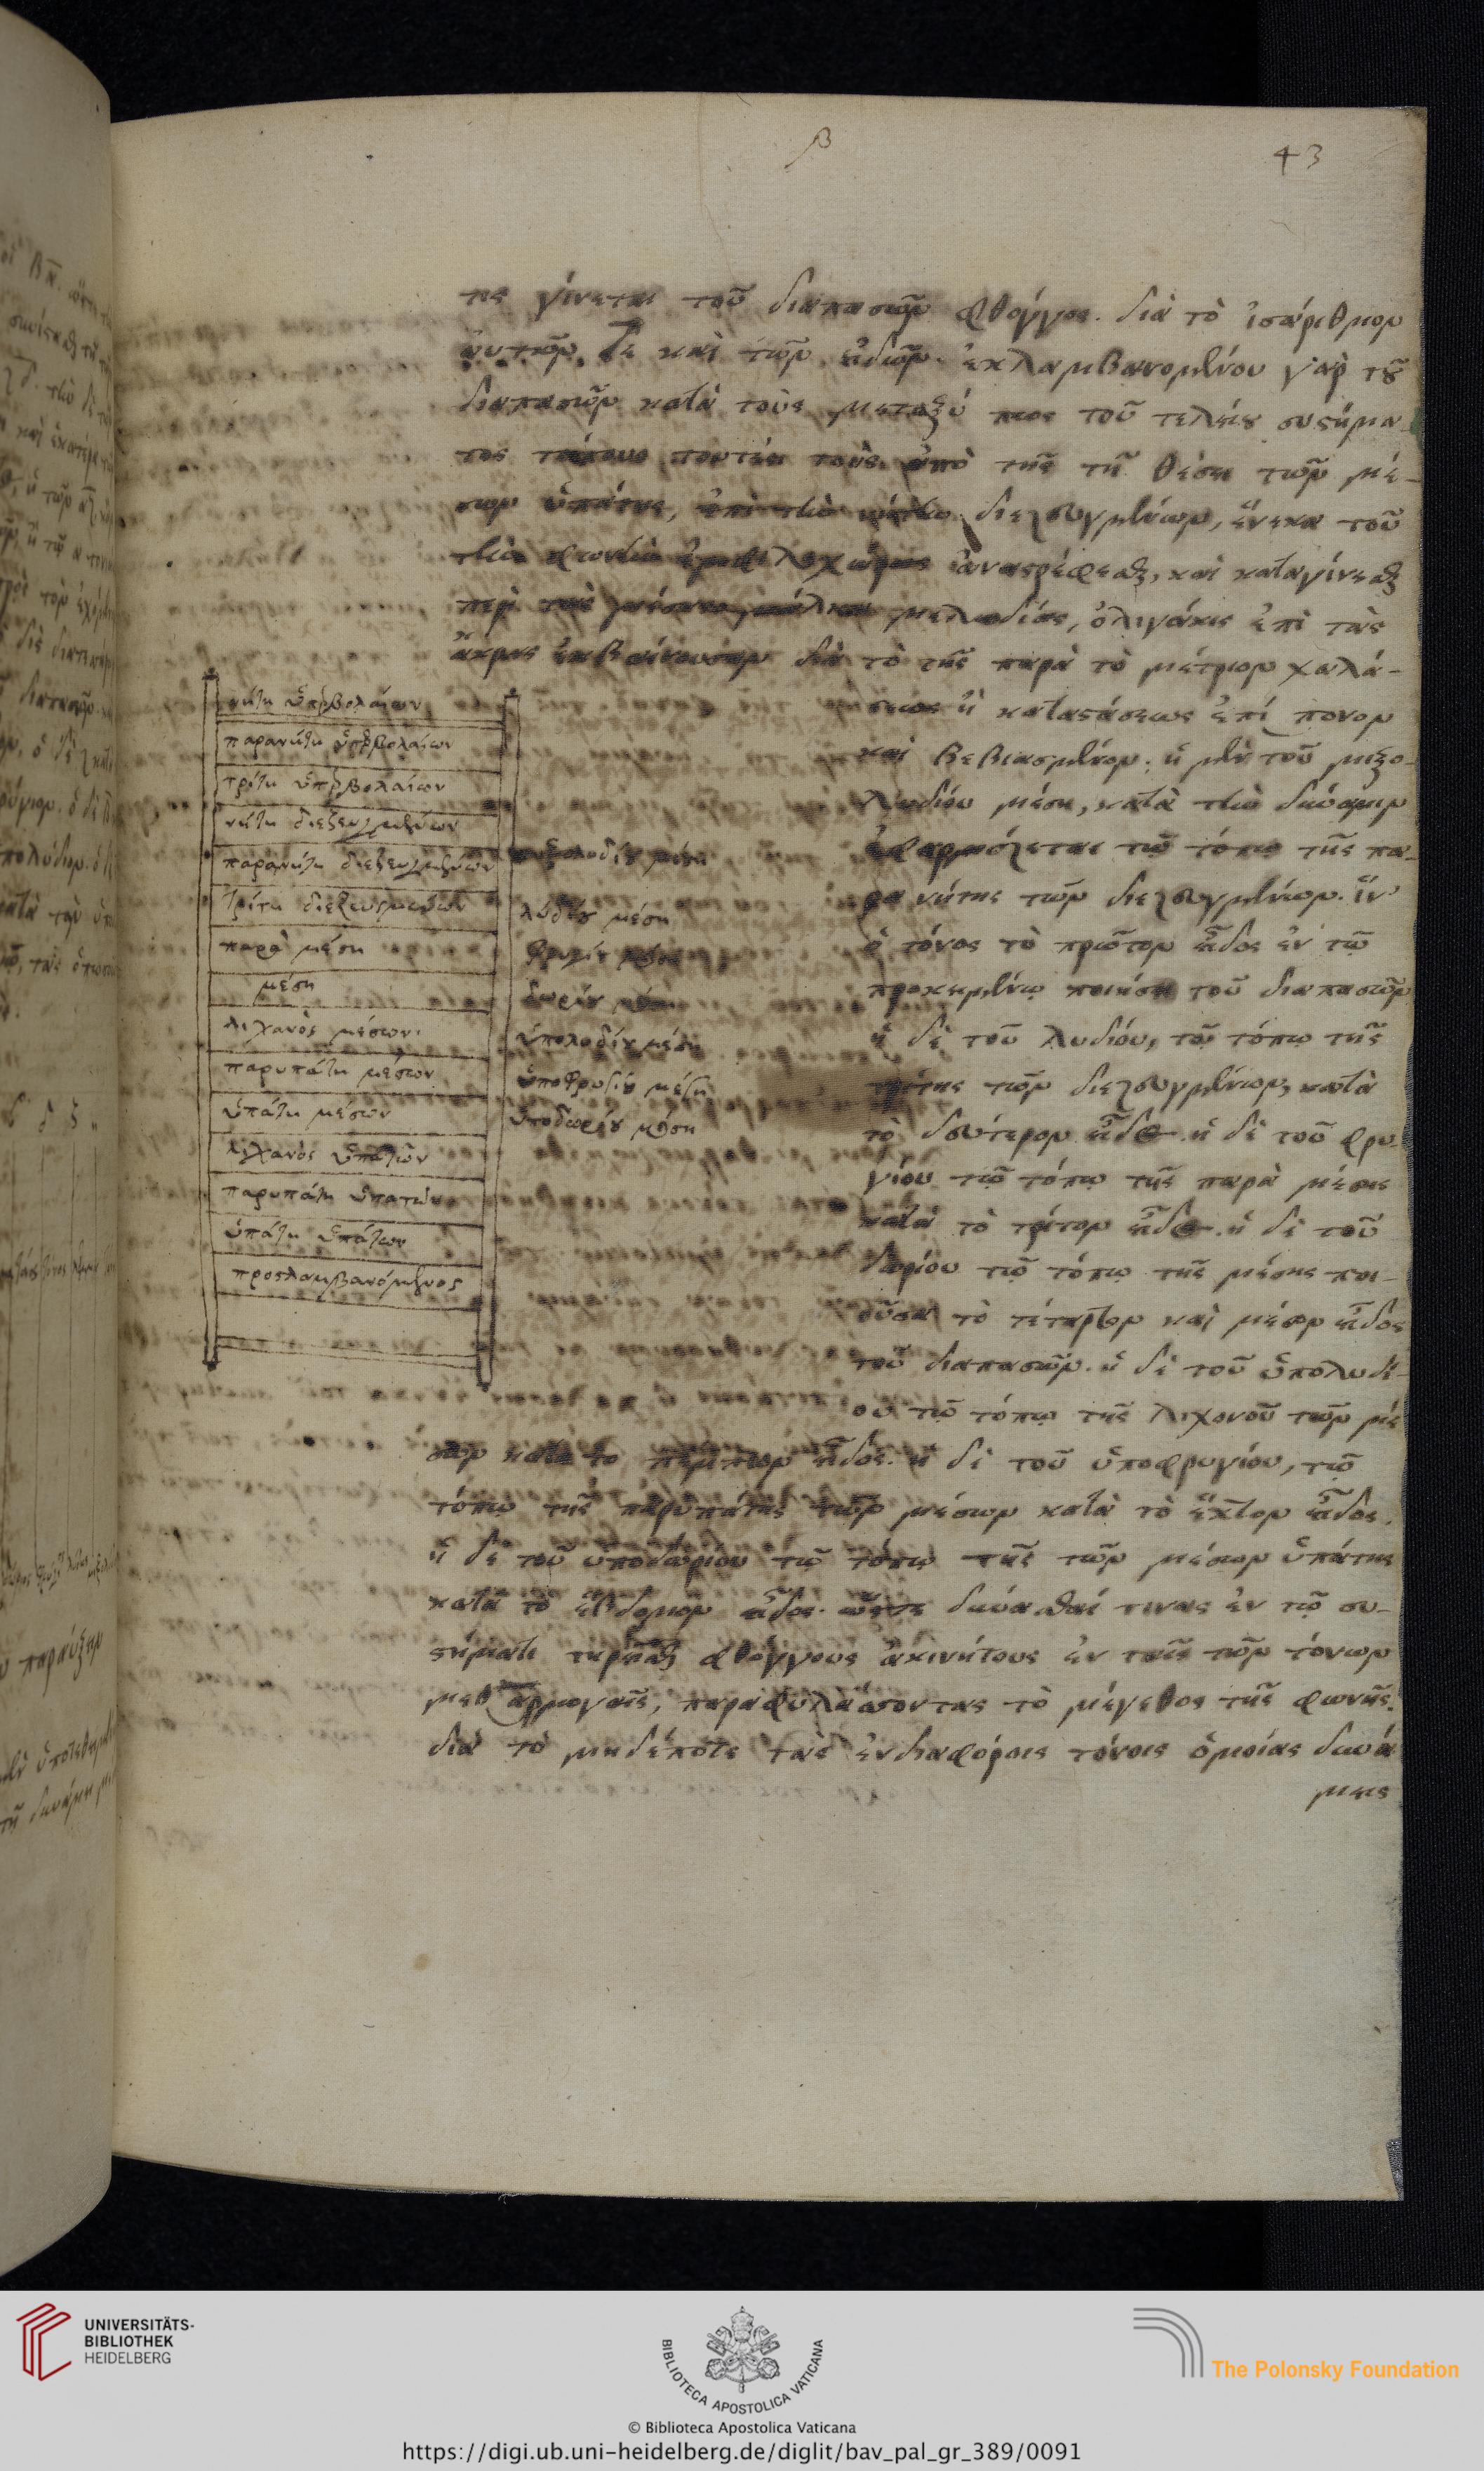 β
43
τις γίνεται τοῦ διαπασῶν φθόγγος. διὰ τὸ ἰσάριθμον
αὐτῶν τε καὶ τῶν εἰδῶν. ἐκλαμβανομένου γὰρ τοῦ
διαπασῶν κατὰ τοὺς μεταξύ πως τοῦ τελείου συστήμα-
τος τόπους τουτέστι τοὺς ἀπὸ τῆς τῇ θέσει τῶν μέ-
σων ὑπάτης, ἐπὶ τὴν νήτην διεζευγμένων, ἕνεκα τοῦ
τὴν φωνὴν ἐμφιλοχώρως ἀναστρέφεσθαι, καὶ καταγίνεσθαι
περὶ τὰς μέσας μάλιστα μελωδίας, ὀλιγάκις ἐπὶ τὰς
ἄκρας ἐκβαίνουσαν διὰ τὸ τῆς παρὰ τὸ μέτριον χαλά-
σεως ἢ κατατάσεως ἐπί πονον
καὶ βεβιασμένον. ἡ μὲν τοῦ μιξο-
λυδίου μέση, κατὰ τὴν δύναμιν
ἐφαρμόζεται τῷ τόπῳ τῆς πα-
ρα νήτης τῶν διεζευγμένων. ἵν'
ὁ τόνος τὸ πρῶτον εἶδος ἐν τῷ
προκειμένῳ ποιήσῃ τοῦ διαπασῶν
ἡ δὲ τοῦ λυδίου, τῷ τόπῳ τῆς
τρίτης τῶν διεζευγμένων, κατὰ
τὸ δεύτερον εἶδος. ἡ δὲ τοῦ φρυ-
γίου τῷ τόπῳ τῆς παρὰ μέσης
κατὰ τὸ τρίτον εἶδος. ἡ δὲ τοῦ
δωρίου τῷ τόπῳ τῆς μέσης ποι-
οῦσα τὸ τέταρτον καὶ μέσον εἶδος
τοῦ διαπασῶν. ἡ δὲ τοῦ ὑπολυδί-
ου τῷ τόπῳ τῆς λιχανοῦ τῶν μέ
σων κατὰ τὸ πέμπτον εἶδος. ἡ δὲ τοῦ ὑποφρυγίου, τῷ
τόπῳ τῆς παρυπάτης τῶν μέσων κατὰ τὸ ἕκτον εἶδος.
ἡ δὲ τοῦ ὑποδωρίου τῷ τόπῳ τῆς τῶν μέσων ὑπάτης
κατὰ τὸ ἕβδομον εἶδος. ὥστε δύνασθαί τινας ἐν τῷ συ-
στήματι τηρεῖσθαι φθόγγους ἀκινήτους ἐν ταῖς τῶν τόνων
μεθαρμογαῖς, παραφυλάσσοντας τὸ μέγεθος τῆς φωνῆς.
διὰ τὸ μηδέποτε τὰς ἐν διαφόροις τόνοις ὁμοίας δυνά
μεις
νήτη ὑπερβολαίων
παρανήτη ὑπερβολαίων
τρίτη ὑπερβολαίων
νήτη διεζευγμένων
παρανήτη διεζευγμένων
τρίτη διεζευγμένων
παρὰ μέση
μέση
λιχανὸς μέσων
παρυπάτη μέσων
ὑπάτη μέσων
λιχανὸς ὑπάτων
παρυπάτη ὑπατῶν
ὑπάτη ὑπάτων
προσλαμβανόμενος
μιξολυδίου μέση
λυδίου μέση
φρυγίου μέση
δωρίου μέση
ὑπολυδίου μέση
ὑποφρυγίου μέση
ὑποδωρίου μέση
UNIVERSITÄTS-
BIBLIOTHEK
HEIDELBERG
BIBLIOTECA APOSTOLICA VATICANA
The Polonsky Foundation
© Biblioteca Apostolica Vaticana
https://digi.ub.uni-heidelberg.de/diglit/bav_pal_gr_389/0091